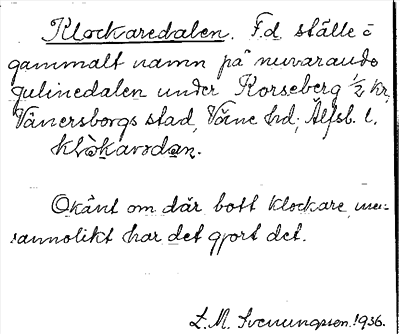 Klockaredalen. F.d. ställe o
gammalt namn på nuvarande
Julinedalen under Korseberg 1/2 kr,
Vänersborgs stad, Väne hd; Älfsb. l.
Okänt om där bott klockare, men
sannolikt har det gjort det.
L. M. Svenungsson. 1936.